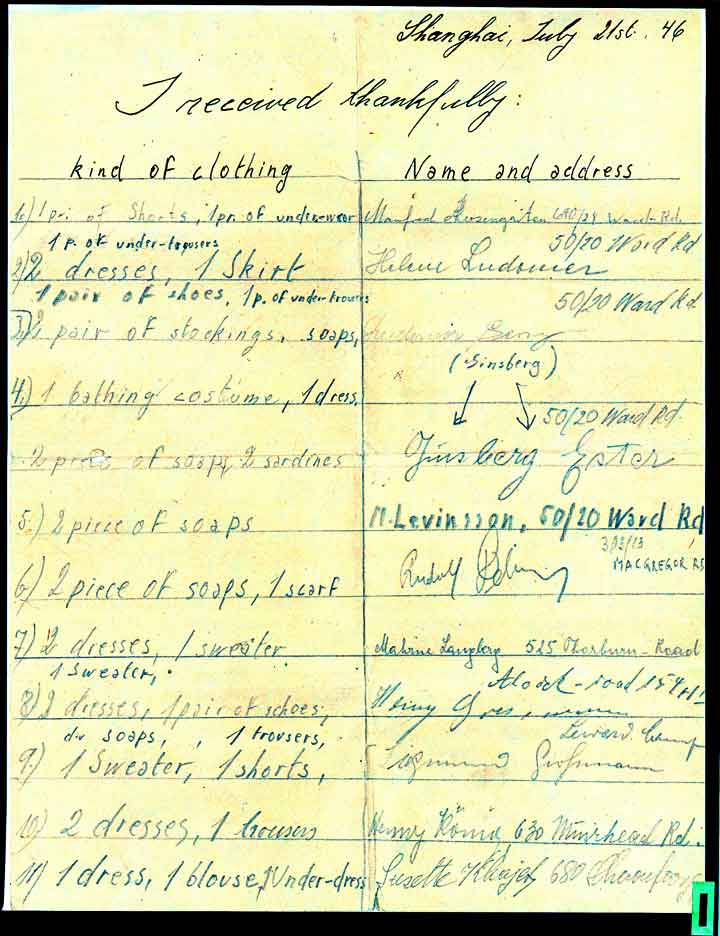 Shanghai, July 21st. 46
I received thankfully:
kind of clothing
Name and address
1.) 1 pr. of Shorts, 1pr. of under-wear
Manfred Rosengarten Ward-Rd.
1 p. of under-trousers
50/20 Ward Rd
2) 2 dresses, 1 Skirt
Helene
1 pair of shoes, 1 p. of under-trousers
50/20 Ward Rd
3) 2 pair of stockings, soaps,
(Ginsberg)
4.) 1 bathing costume, 1 dress,
50/20 Ward Rd.
2 piece of soap, 2 sardines
Ginsberg Ester
5.) 2 piece of soaps
M. Levinsson, 50/20 Ward Rd
MACGREGOR RD
6) 2 piece of soaps, 1 scarf
Rudolf
7) 2 dresses, 1 sweater
Langberg 525 Thorburn-Road
1 Sweater,
8) 2 dresses, 1 pair of schoes,
div soaps, , 1 trousers,
9.) 1 Sweater, 1 shorts,
10) 2 dresses, 1 trousers
Henny König, 630 Muirhead Rd.
11) 1 dress, 1 blouse, 1 Under-dress
680